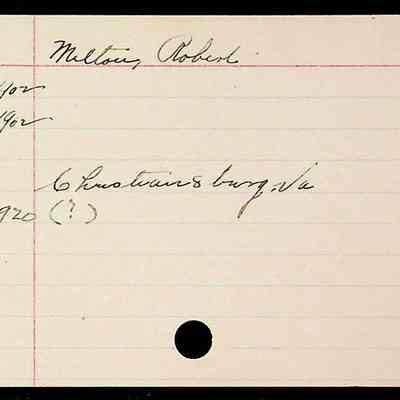 Melton, Robert
1902
1902
Christiansburg, Va
1920 (?)